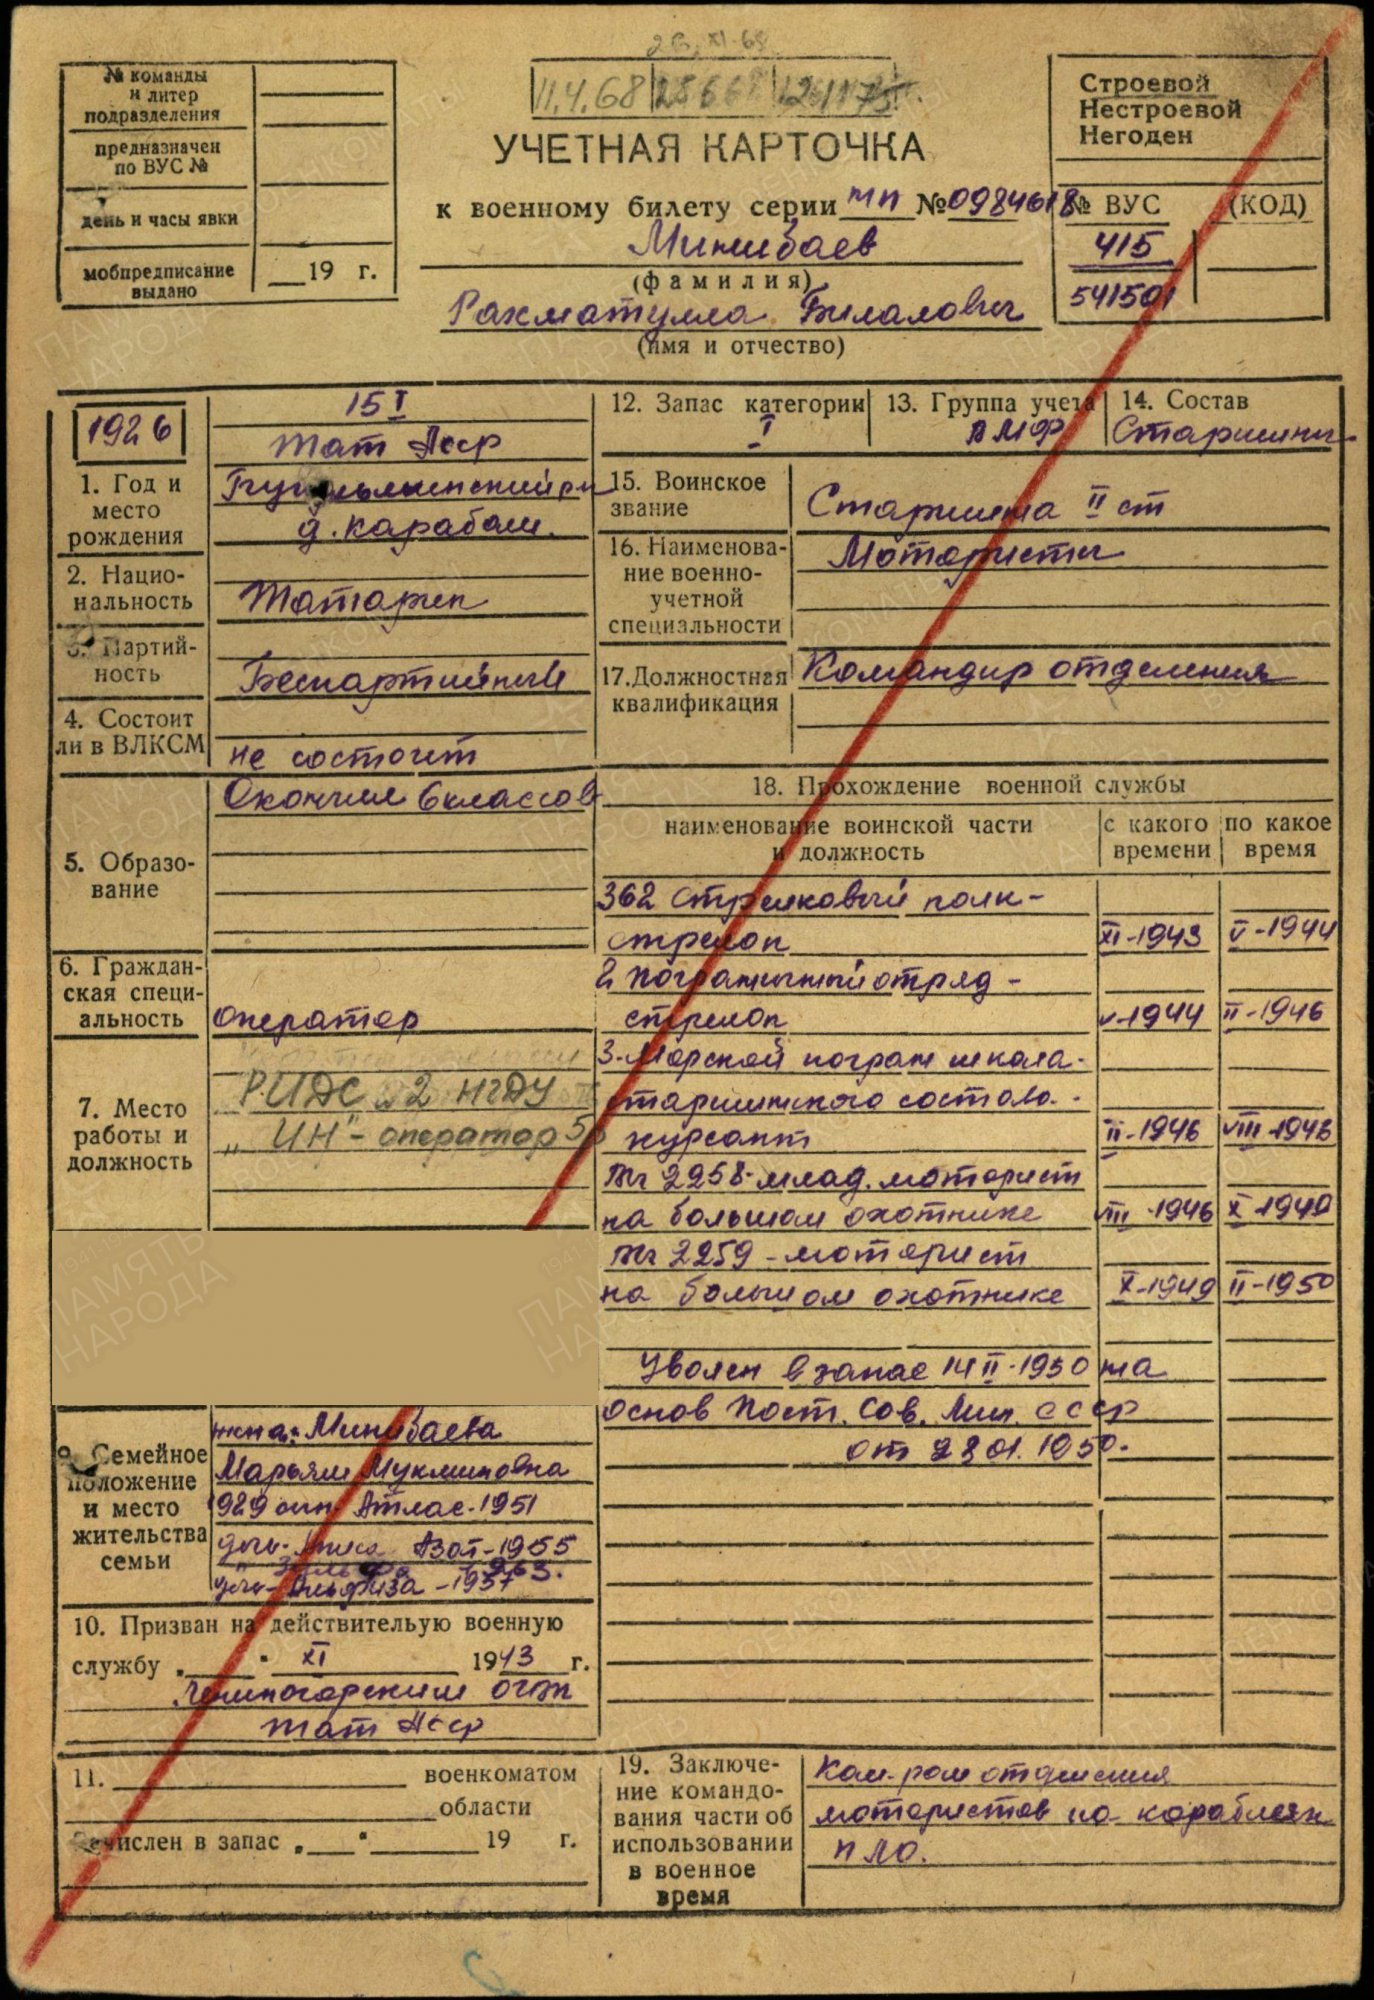 № команды
и литер
подразделения
предназначен
по ВУС №
день и часы явки
мобпредписание
выдано
19 г.
11.4.68
УЧЕТНАЯ КАРТОЧКА
к военному билету серии МП № 0984618
Минибаев
(фамилия)
Рахматулла Билалович
(имя и отчество)
Строевой
Нестроевой
Негоден
№ ВУС (КОД)
415
541501
1926
1. Год и
место
рождения
15 I
Тат Асср
Бугульминский рн
д. Карабаш.
2. Нацио-
нальность
Татарин
3. Партий-
ность
Беспартийный
4. Состоит
ли в ВЛКСМ
не состоит
5. Образо-
вание
Окончил 6 классов
6. Граждан-
ская специ-
альность
оператор
7. Место
работы и
должность
РИДС 2 НГДУ
„ ИН"- оператор 5р
9. Семейное
положение
и место
жительства
семьи
жена: Минибаева
Марьям Мукминовна
1929 сын Атлас-1951
Азат-1955
1963.
дочь- Альфиза -1957
10. Призван на действительную военную
службу „ " XI 1943 г.
Лениногорским
Тат Асср
11. военкоматом
области
Зачислен в запас „ " 19 г.
12. Запас категории
I
13. Группа учета
ВМФ
14. Состав
Старшины
15. Воинское
звание
Старшина II ст
16. Наименова-
ние военно-
учетной
специальности
Мотористы
17. Должностная
квалификация
Командир отделения
18. Прохождение военной службы
наименование воинской части
и должность
с какого
времени
по какое
время
362 стрелковый полк-
стрелок XI-1943 V-1944
2 пограничный отряд -
стрелок V-1944 II-1946
3-Морской погран школа-
старшинского состава.-
курсант II-1946 VIII-1946
вч 2258-млад. моторист
на большом охотнике VIII-1946 X-1949
вч 2259-моторист
на большом охотнике X-1949 II-1950
Уволен в запас 14 II-1950 на
основ Пост. Сов. Мин. СССР
от 28 01. 1950.
19. Заключе-
ние командо-
вания части об
использовании
в военное
время
Ком-ром отделения
мотористов на кораблях
ПЛО.
ПАМЯТЬ
НАРОДА